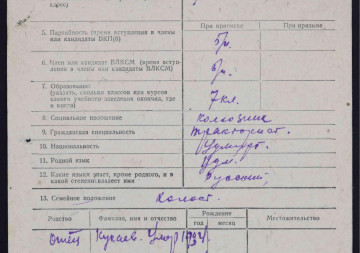 адрес)
При приписке
При призыве
5. Партийность (время вступления в члены
или кандидаты ВКП(б)
б/п.
6. Член или кандидат ВЛКСМ (время всту-
пления в члены или кандидаты ВЛКСМ)
б/п.
7. Образование:
(указать, сколько классов или курсов
какого учебного заведения окончил, где
и когда)
7 кл.
8. Социальное положение
колхозник
9. Гражданская специальность
тракторист.
10. Национальность
Удмурт.
11. Родной язык
Удм.
12. Какие языки знает, кроме родного, и в
какой степени владеет ими
Русский
13. Семейное положение
Холост.
Родство
Фамилия, имя и отчество
Рождение
год
месяц
Местожительство
Отец